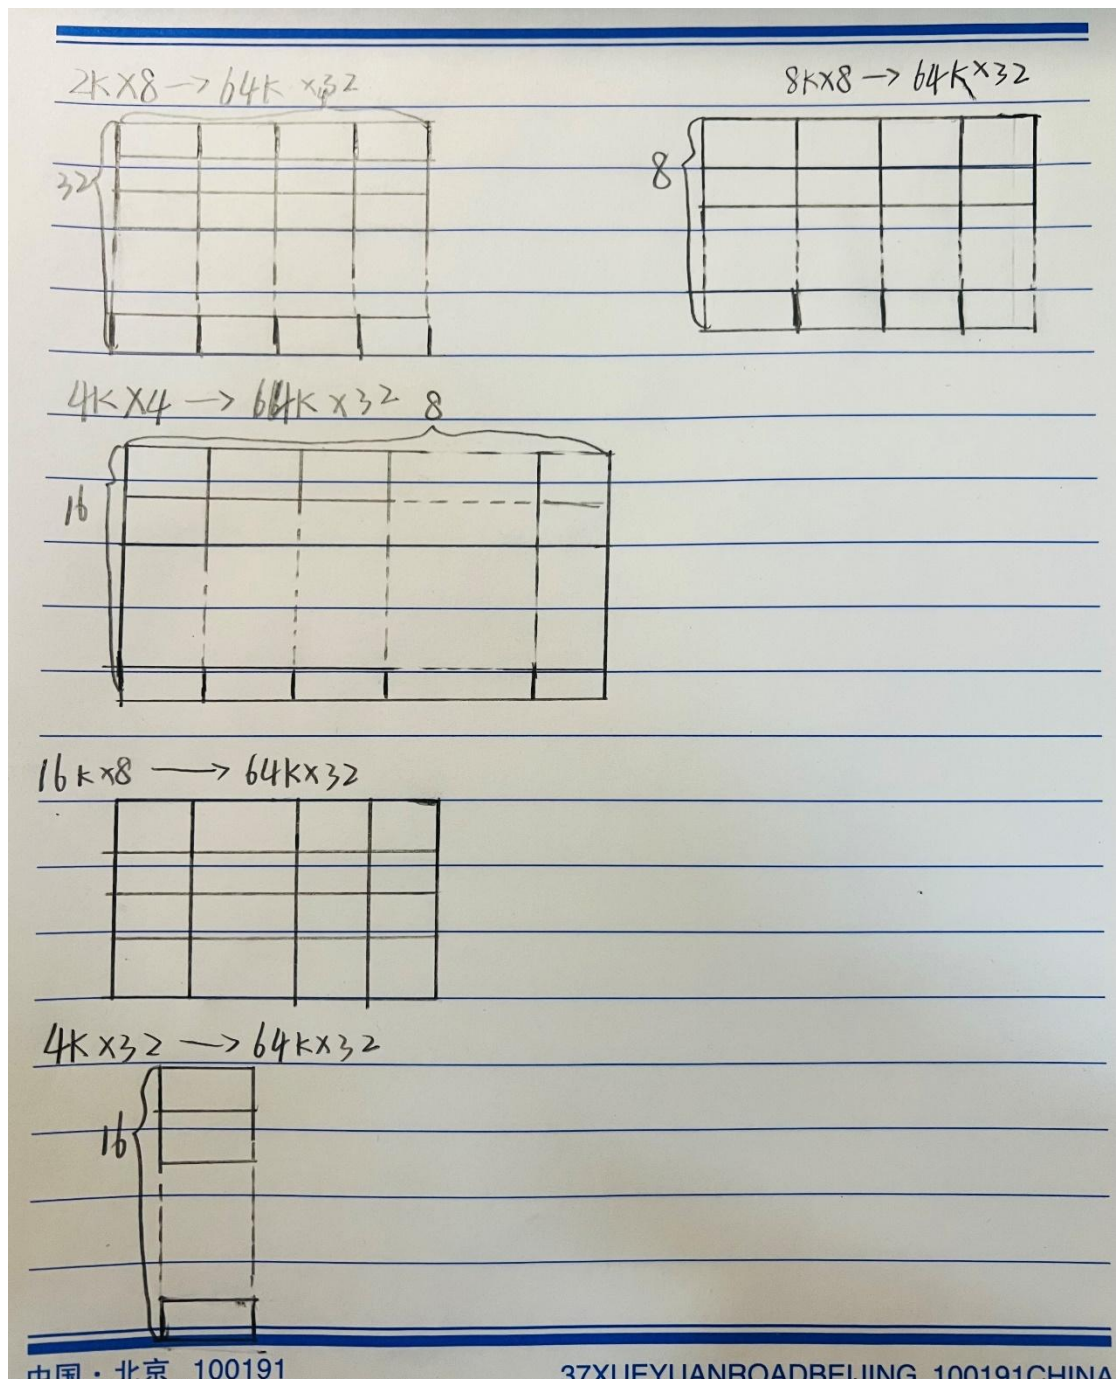 2K×8→64K ×32
8K×8→64K×32
4
32
8
4K×4→64K×32
8
16
16K×8→64K×32
4K×32→64K×32
16
中国·北京 100191
37XUEYUANROADBEIJING 100191CHINA